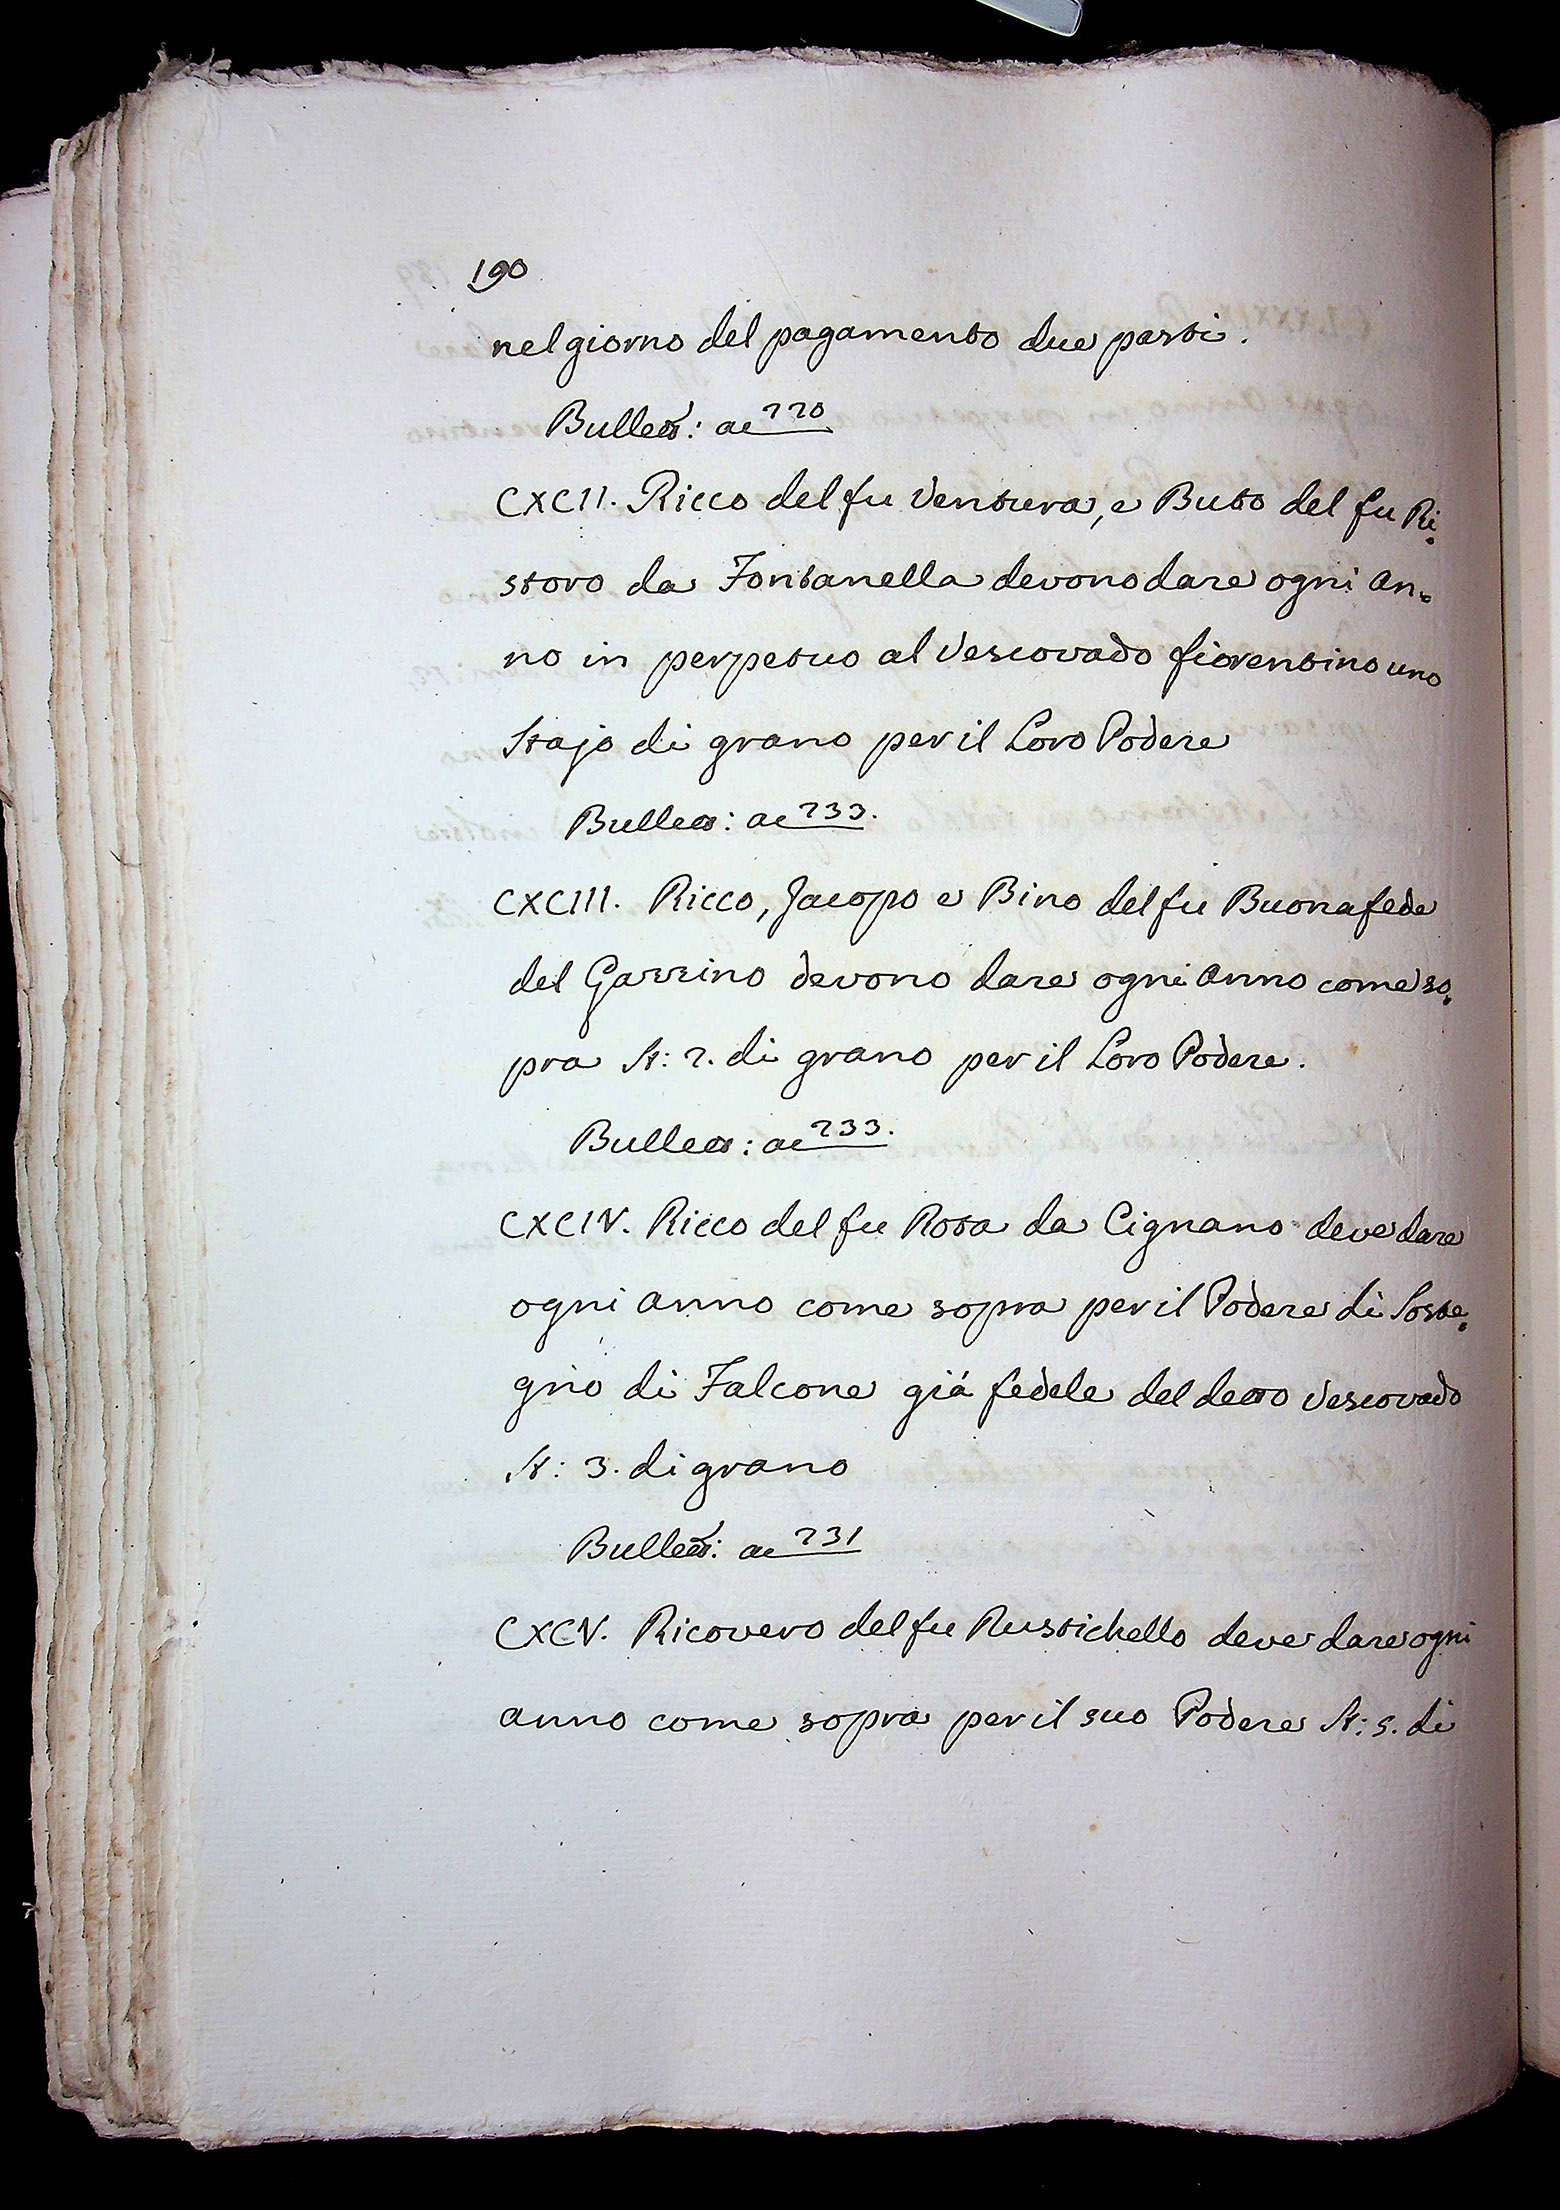 190
nel giorno del pagamento due parti.
Bullett: ac 220
CXCII. Ricco del fu Ventura, e Buto del fu Ri-
storo da Fontanella devono dare ogni an-
no in perpetuo al Vescovado fiorentino uno
Stajo di grano per il Loro Podere
Bullett: ac 233.
CXCIII. Ricco, Jacopo e Bino del fu Buonafede
del Gazzino devono dare ogni anno come so-
pra St: 2. di grano per il Loro Podere.
Bullett: ac 233.
CXCIV. Ricco del fu Rota da Cignano deve dare
ogni anno come sopra per il Podere di Soste-
gno di Falcone giá fedele del detto Vescovado
St: 3. di grano
Bullett: ac 231
CXCV. Ricovero del fu Rustichello deve dare ogni
anno come sopra per il suo Podere St: 5. di